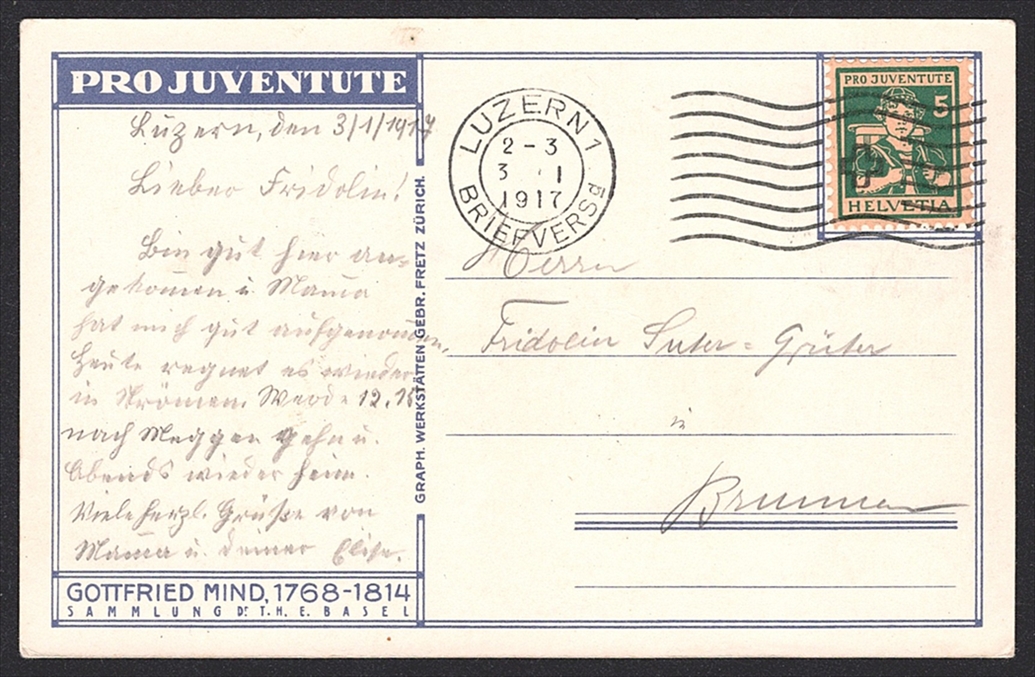 PRO JUVENTUTE
Luzern, den 3/1/1917
Lieber Fridolin!
Bin gut hier an=
gekommen u. Mama
hat mich gut aufgenommen.
Heute regnet es wieder
in Strömen. Werde 12.15
nach Meggen gehn u.
Abends wieder heim.
Viele herzl. Grüße von
Mama u. deiner Elise.
GOTTFRIED MIND, 1768-1814
SAMMLUNG DR. T. H. E. BASEL
GRAPH. WERKSTÄTTEN GEBR. FRETZ ZÜRICH.
LUZERN 1
2-3
3 I
1917
BRIEFVERS.
PRO JUVENTUTE
5
HELVETIA
Herrn
Fridolin Suter=Grüter
in
Brunnen